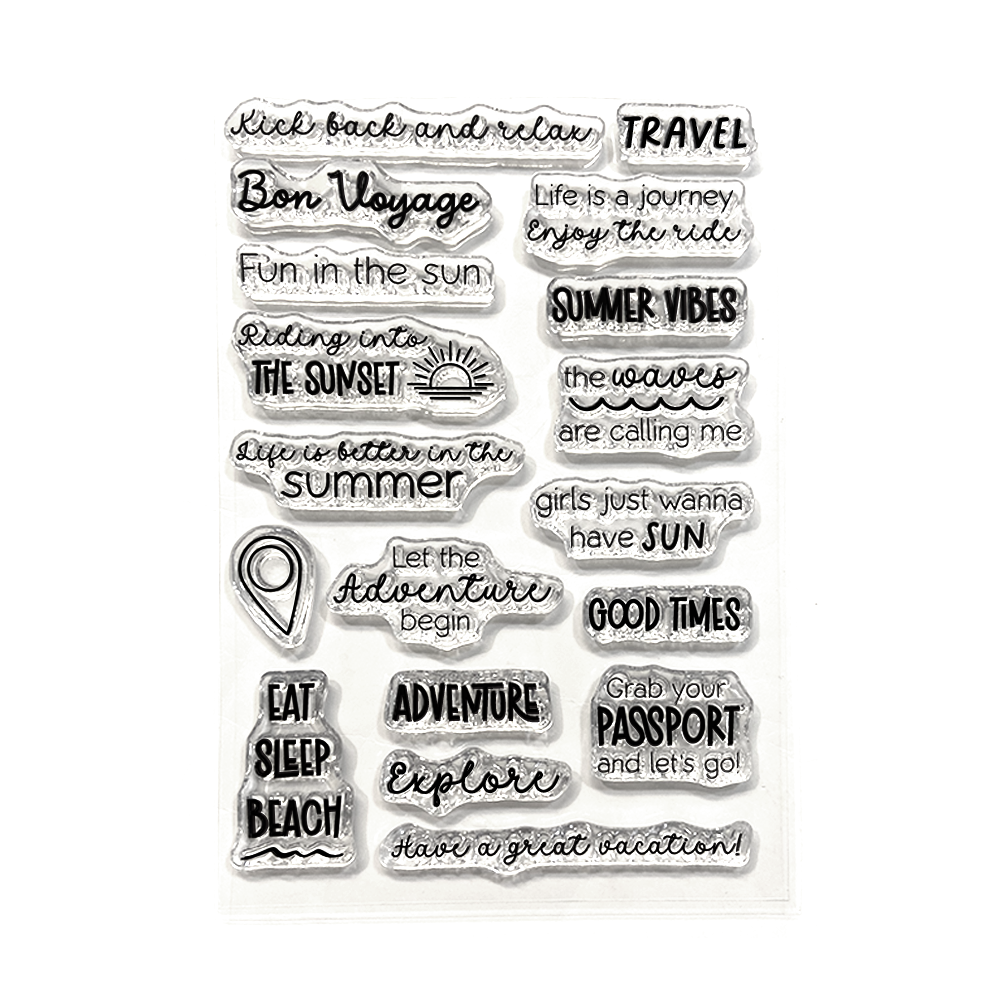 Kick back and relax
TRAVEL
Bon Voyage
Life is a journey
Enjoy the ride
Fun in the sun
SUMMER VIBES
Riding into
THE SUNSET
the waves
are calling me
Life is better in the
summer
girls just wanna
have SUN
Let the
Adventure
begin
GOOD TIMES
EAT
SLEEP
BEACH
ADVENTURE
Grab your
PASSPORT
and let's go!
Explore
Have a great vacation!